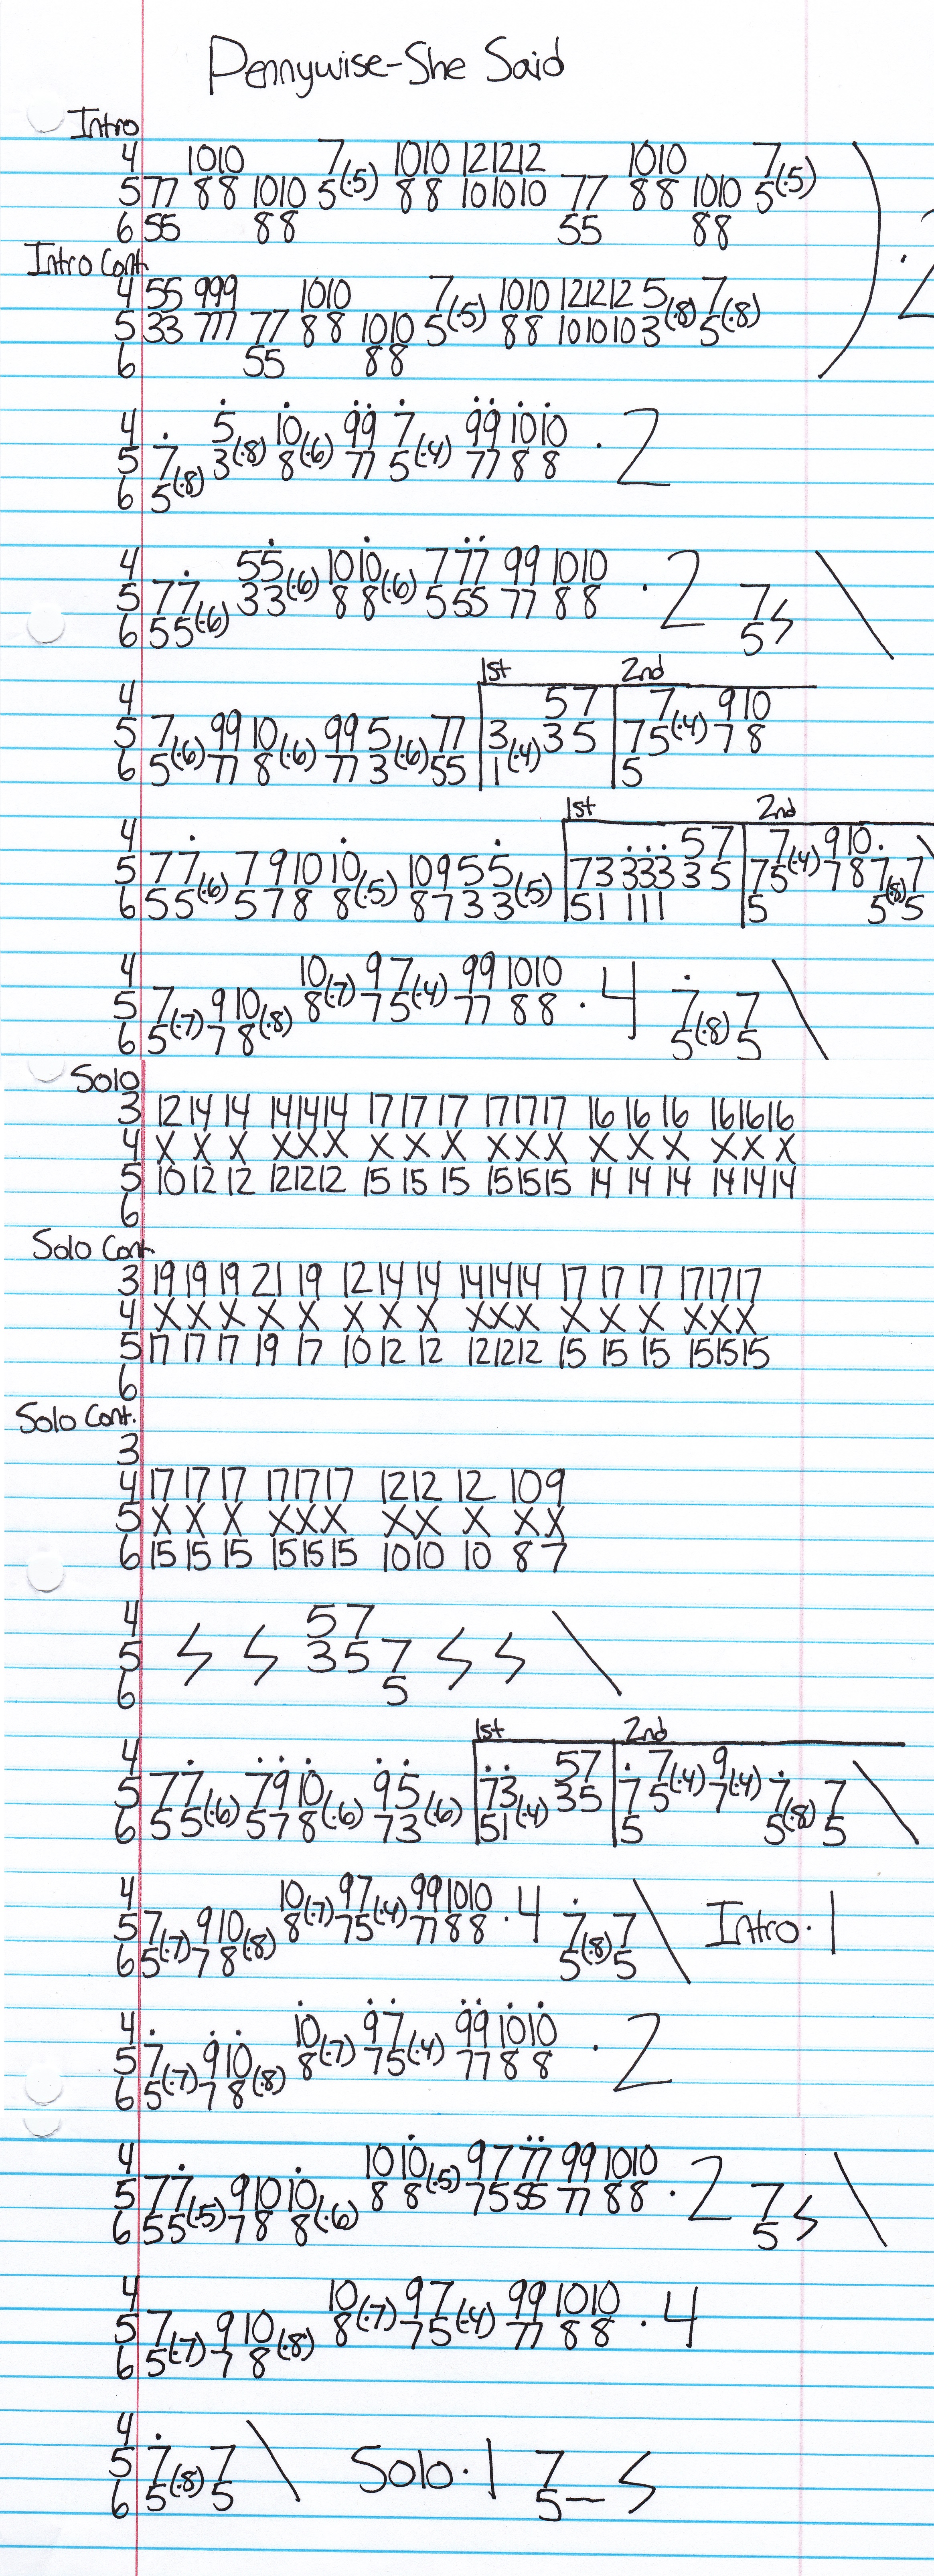 Pennywise-She Said
Intro
4 1010 7(·5) 1010 121212 1010 7(·5)
5 77 88 1010 5 88 101010 77 88 1010 5
6 55 88 55 88
) ·2
Intro Cont.
4 55 999 1010 7(·5) 1010 121212 5(·8) 7(·8)
5 33 777 77 88 1010 5 88 101010 3 5
6 55 88
4 5(·8) 10(·6) 99 7(·4) 99 1010 ·2
5 7(·8) 3 8 77 5 77 88
6 5
4 55(·6) 1010(·6) 777 99 1010 ·2
5 77(·6) 33 88 555 77 88 7
6 55 5 \
1st 2nd
4 57 7(·4) 910
5 7(·6) 99 10(·6) 99 5(·6) 77 3(·4) 35 75 78
6 5 77 8 77 3 55 1 5
1st 2nd
4 57 7(·4) 910
5 77(·6) 791010(·5) 10955(·5) 73333 35 75 78 7(·8) 7
6 55 5788 8733 51111 5 5 5
4 10(·7) 97(·4) 99 1010 ·4
5 7(·7) 910(·8) 8 75 77 88 7(·8) 7 \
6 5 78 5 5
Solo
3 12 14 14 141414 17 17 17 171717 16 16 16 161616
4 X X X XXX X X X XXX X X X XXX
5 10 12 12 121212 15 15 15 151515 14 14 14 141414
6
Solo Cont.
3 19 19 19 21 19 12 14 14 141414 17 17 17 171717
4 X X X X X X X X XXX X X X XXX
5 17 17 17 19 17 10 12 12 121212 15 15 15 151515
6
Solo Cont.
3
4 17 17 17 171717 1212 12 109
5 X X X XXX XX X XX
6 15 15 15 151515 1010 10 87
4 57
5 357 \
6 5
1st 2nd
4 57 7(·4) 9(·4)
5 77(·6) 7910(·6) 95(·6) 73(·4) 35 75 7 7(·8) 7 \
6 55 578 73 51 5 5 5
4 10(·7) 97(·4) 991010 ·4
5 7(·7) 910(·8) 8 75 7788 7(·8) 7 \ Intro·1
6 5 78 5 5
4 10(·7) 97(·4) 99 1010 ·2
5 7(·7) 910(·8) 8 75 77 88
6 5 78
4 1010(·5) 97 77 99 1010 ·2
5 77(·5) 91010(·6) 88 75 55 77 88 7 \
6 55 788 5
4 10(·7) 97(·4) 99 1010 ·4
5 7(·7) 910(·8) 8 75 77 88
6 5 78
4
5 7(·8) 7 \ Solo·1 7
6 5 5 5